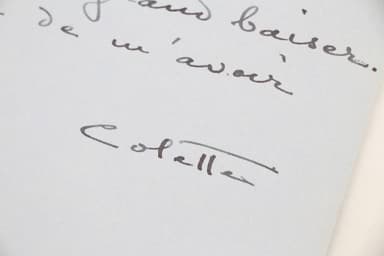 grand baiser.
de m'avoir
Colette